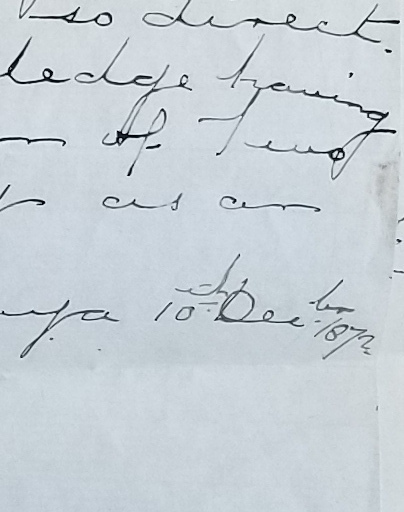 so direct.
ledge having
of Two
as an
10th Decbr 1872